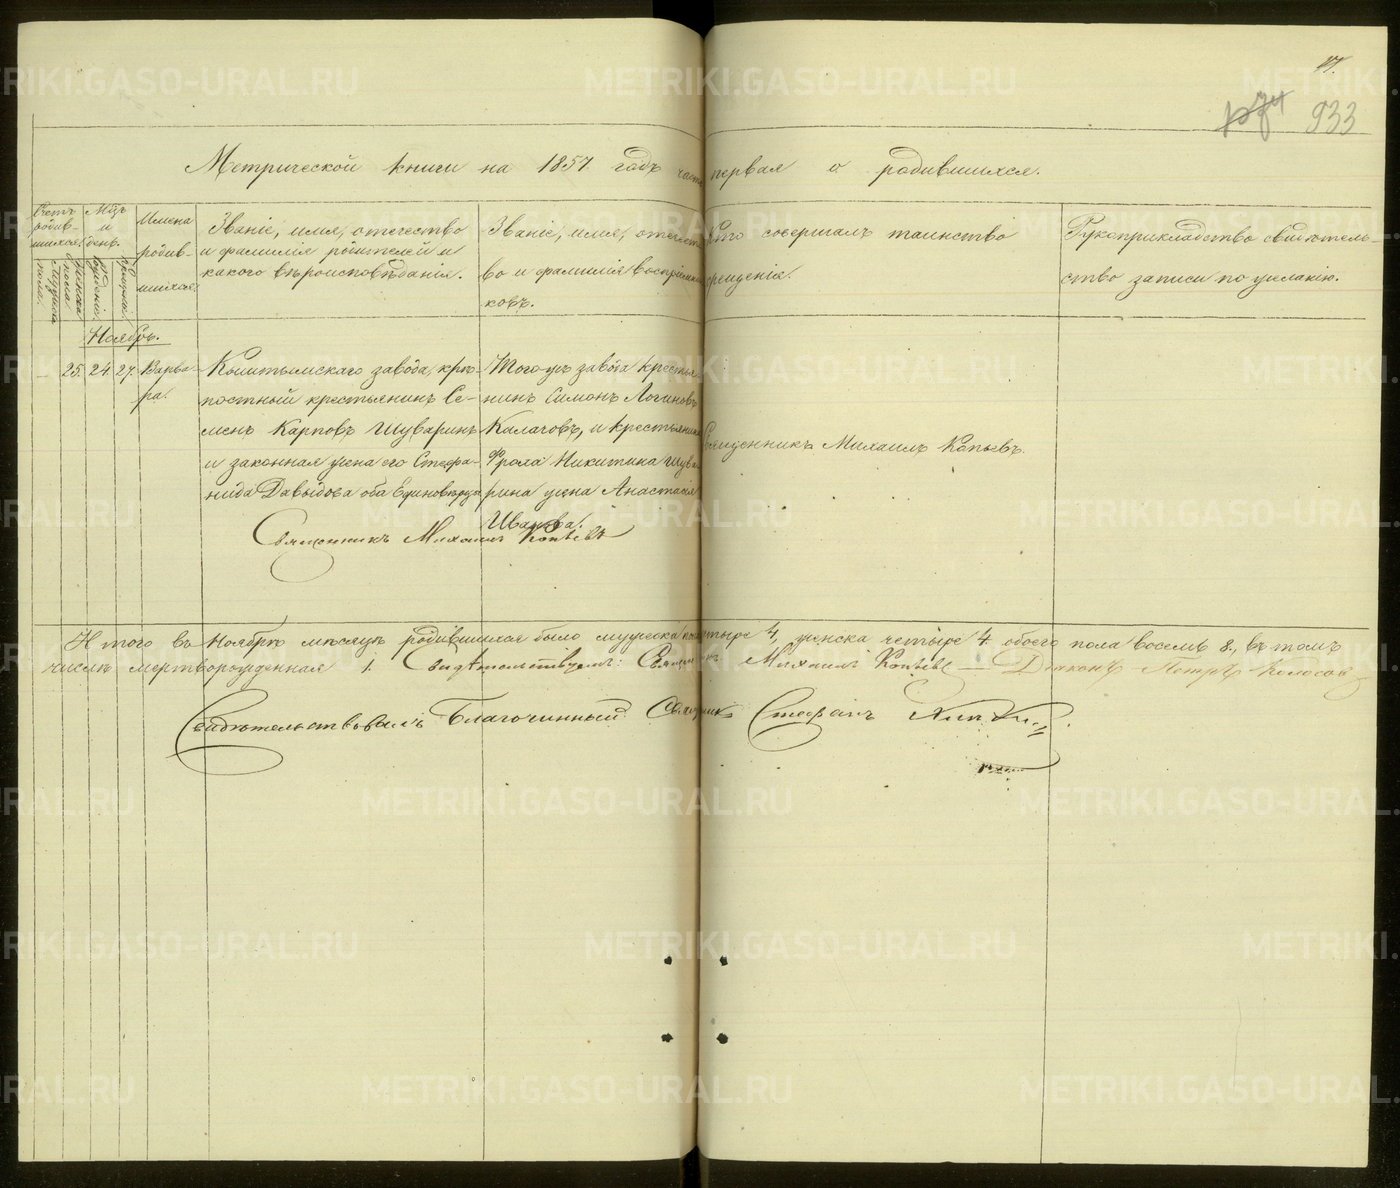 17.
1374 933
Метрической книги на 1857 годъ часть первая о родившихся.
Счетъ родив-шихся.
Мужеска пола.
Женска пола.
Мѣс. и день.
Рожденія.
Крещенія.
Имена родив-шихся.
Званіе, имя, отечество
и фамилія родителей и
какого вѣроисповѣданія.
Званіе, имя, отечест-
во и фамилія воспріемни-
ковъ.
Кто совершалъ таинство
крещенія.
Рукоприкладство свидѣтель-
ство записи по желанію.
Ноябрь.
25. 24. 27. Варва-
ра.
Кыштымскаго завода, крѣ-
постный крестьянинъ Се-
менъ Карповъ Шуваринъ
и законная жена его Стефа-
нида Давыдова оба Единовѣрцы
Того-жъ завода крестья-
нинъ Симонъ Логиновъ
Калачовъ, и крестьянина
Фрола Никитина Шува-
рина жена Анастасія
Иванова.
Священникъ Михаилъ Копьевъ.
Священникъ Михаилъ Копьевъ
Итого въ Ноябрѣ мѣсяцѣ родившихся было мужеска пола четыре 4, женска четыре 4. обоего пола восемь 8., въ томъ
числѣ мертворожденная 1. Свидѣтельствуемъ: Священникъ Михаилъ Копьевъ Діаконъ Петръ Колосовъ
Свидѣтельствовалъ Благочинный Священникъ Стефанъ
METRIKI.GASO-URAL.RU